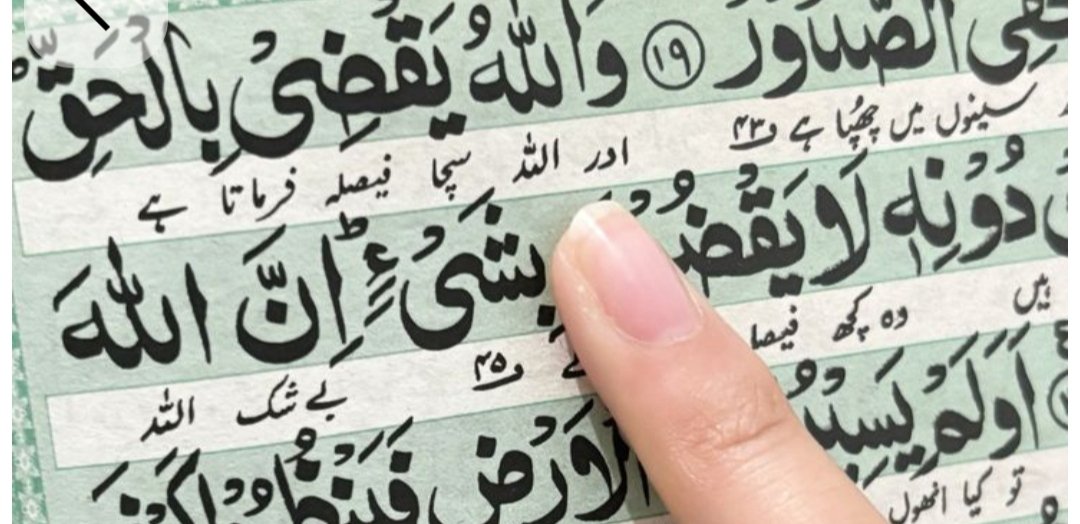 الصُّدُوْرُ ﴿۱۹﴾ وَاللّٰهُ يَقْضِىْ بِالْحَقِّ
سینوں میں چھپا ہے و۴۳ اور اللہ سچا فیصلہ فرماتا ہے
دُوْنِهٖ لَا يَقْضُ بِشَىْءٍ ؕ اِنَّ اللّٰهَ
ہیں وہ کچھ فیصلہ و۴۵ بے شک اللہ
اَوَلَمْ الْاَرْضِ
تو کیا انھوں